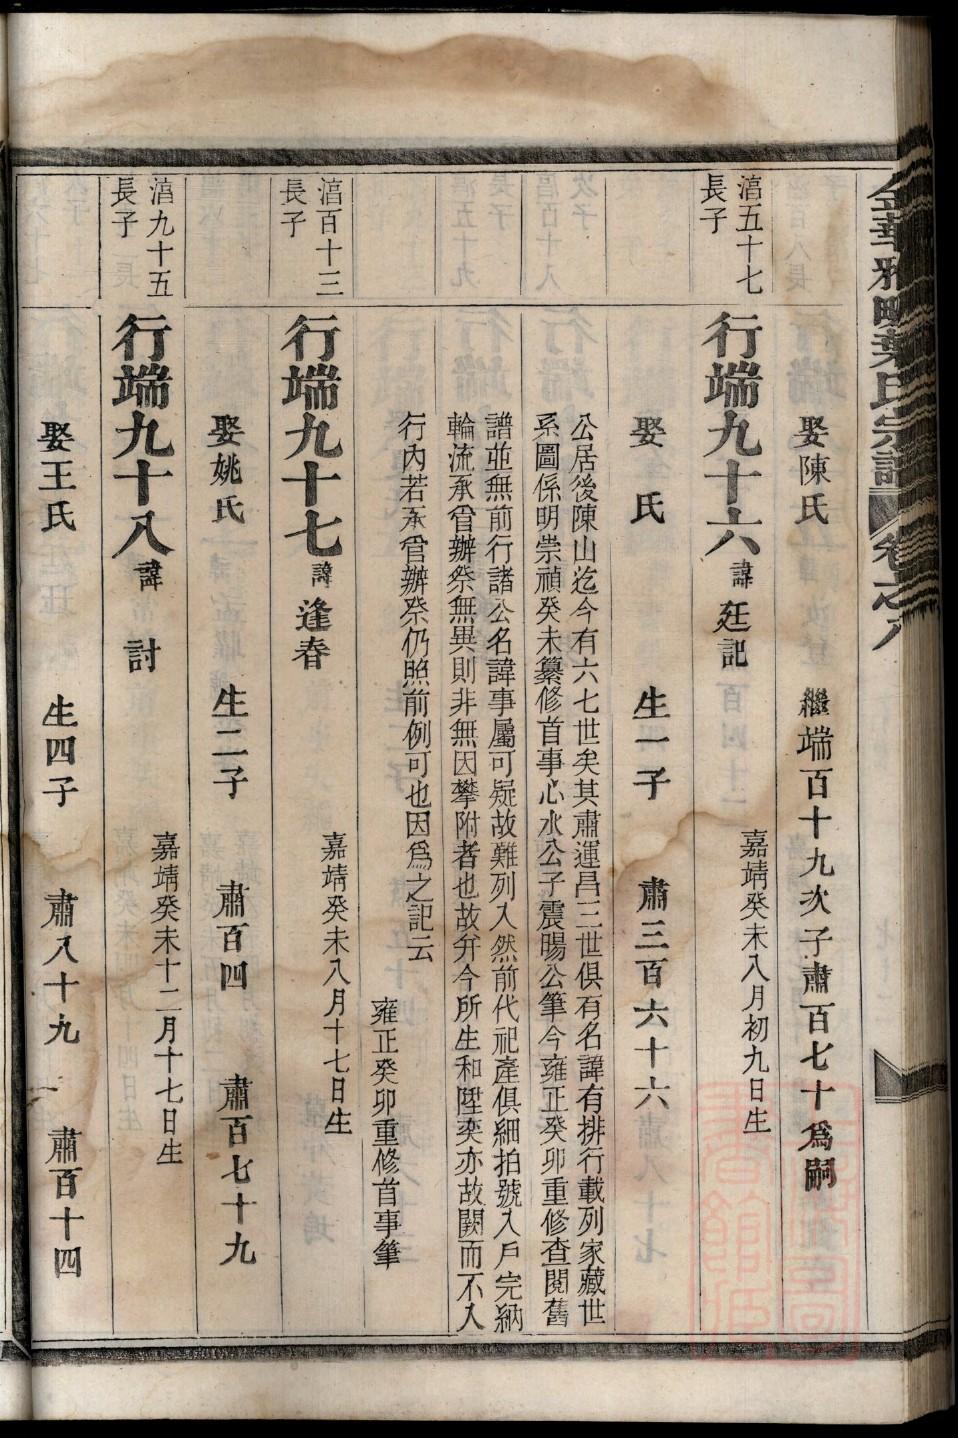 金華雅畈葉氏宗譜 卷之八
娶陳氏 繼端百十九次子肅百七十爲嗣
湻五十七
長子
行端九十六 諱 廷記
嘉靖癸未八月初九日生
娶 氏 生一子 肅三百六十六
公居後陳山迄今有六七世矣其肅運昌三世俱有名諱有排行載列家藏世
系圖係明崇禎癸未纂修首事心水公子震暘公筆今雍正癸卯重修查閱舊
譜並無前行諸公名諱事屬可疑故難列入然前代祀產俱細拍號入戶完納
輪流承管辦祭無異則非無因攀附者也故弁今所生和陞奕亦故闕而不入
行內若承管辦祭仍照前例可也因爲之記云
雍正癸卯重修首事筆
湻百十三
長子
行端九十七 諱 逢春
嘉靖癸未八月十七日生
娶姚氏 生二子 肅百四 肅百七十九
湻九十五
長子
行端九十八 諱 討
嘉靖癸未十二月十七日生
娶王氏 生四子 肅八十九 肅百十四